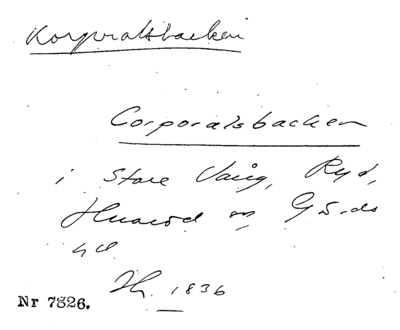 Korporalsbacken
Corporalsbacken
i Stora Vång, Ryd,
Huaröd
1836
Nr 7826.